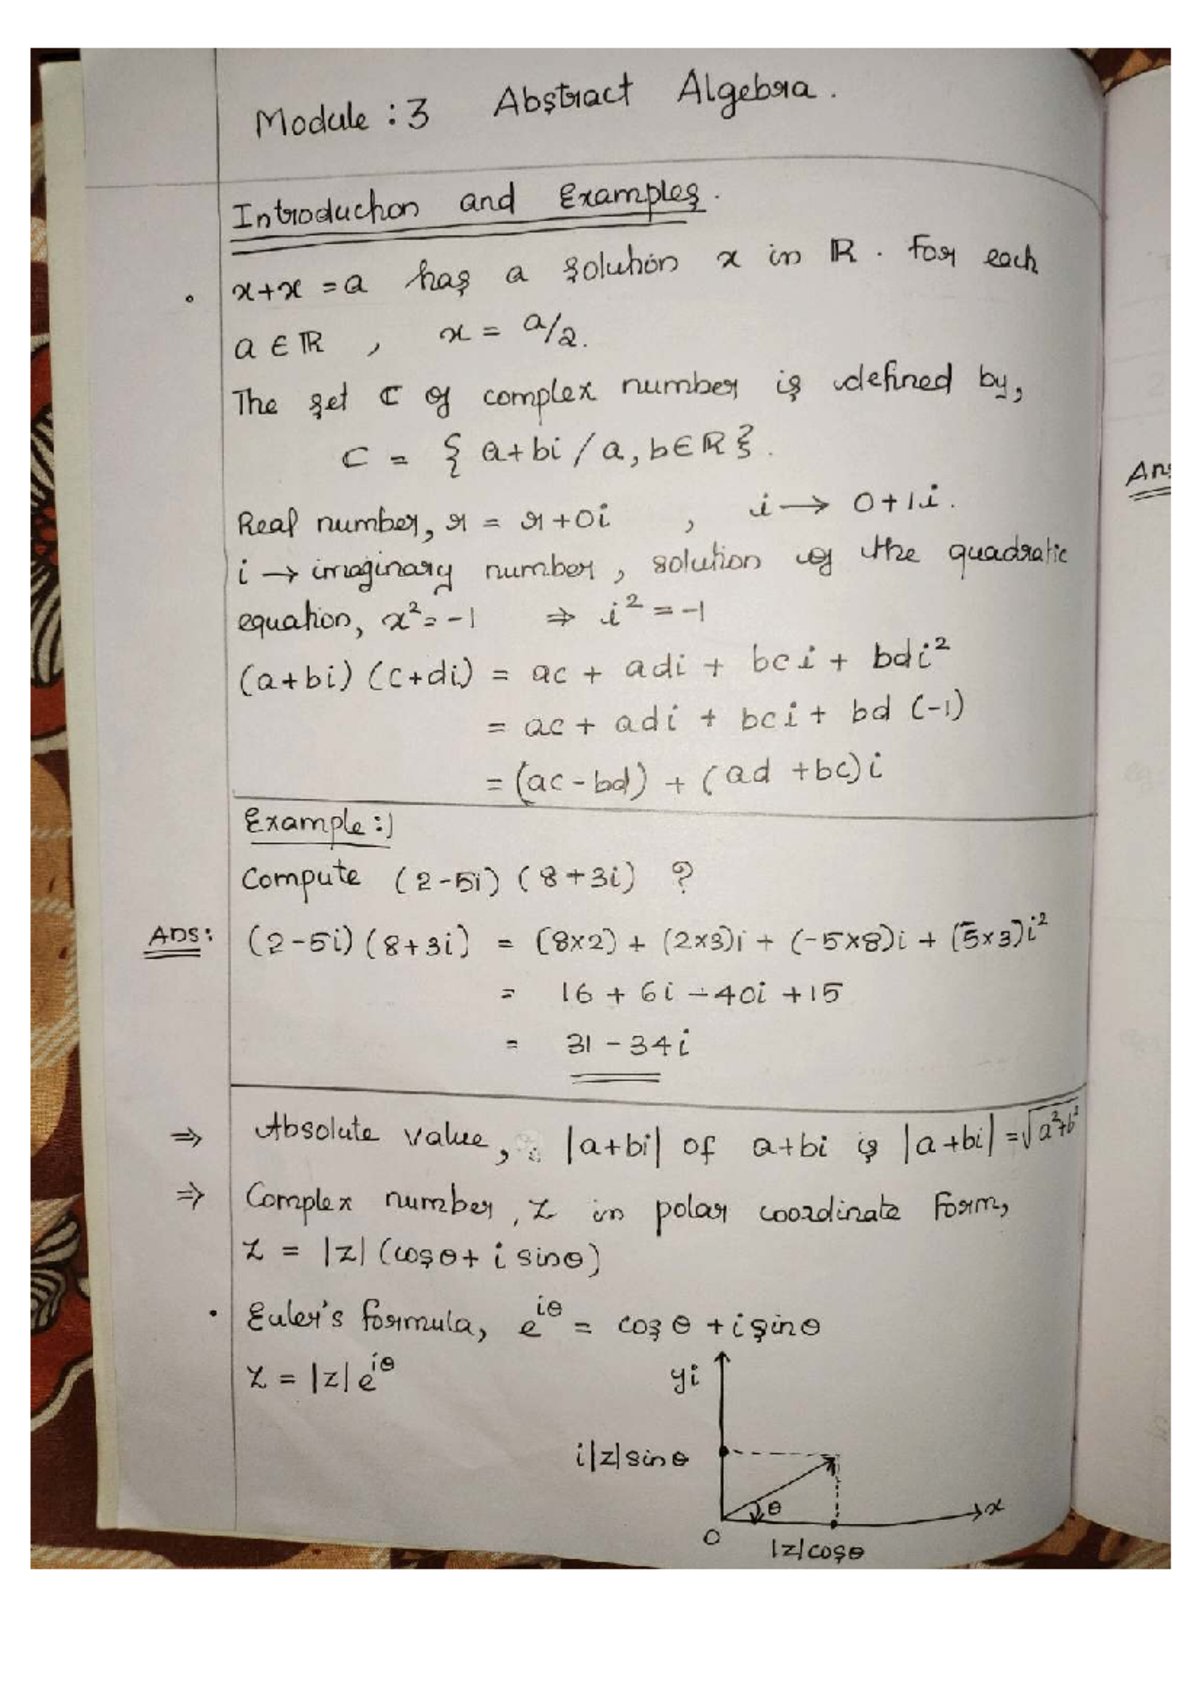 Module : 3 Abstract Algebra.
Introduction and Examples.
x+x = a has a solution x in ℝ. For each
a ∈ ℝ , x = a/2.
The set ℂ of complex number is defined by,
C = { a+bi / a, b∈ℝ}.
Real number, r = r+0i , i → 0+1i.
i → imaginary number, solution of the quadratic
equation, x² = -1 ⇒ i² = -1
(a+bi) (c+di) = ac + adi + bci + bdi²
= ac + adi + bci + bd (-1)
= (ac - bd) + (ad +bc)i
Example :)
Compute (2-5i) (8+3i) ?
Ans: (2-5i) (8+3i) = (8×2) + (2×3)i + (-5×8)i + (-5×3)i²
= 16 + 6i - 40i +15
= 31 - 34i
⇒ Absolute value, |a+bi| of a+bi is |a+bi| = √a²+b²
⇒ Complex number, z in polar coordinate form,
z = |z| (cosθ + i sinθ)
• Euler's formula, e^iθ = cosθ + i sinθ
z = |z| e^iθ
yi
i|z|sinθ
θ
x
O
|z|cosθ
Ans